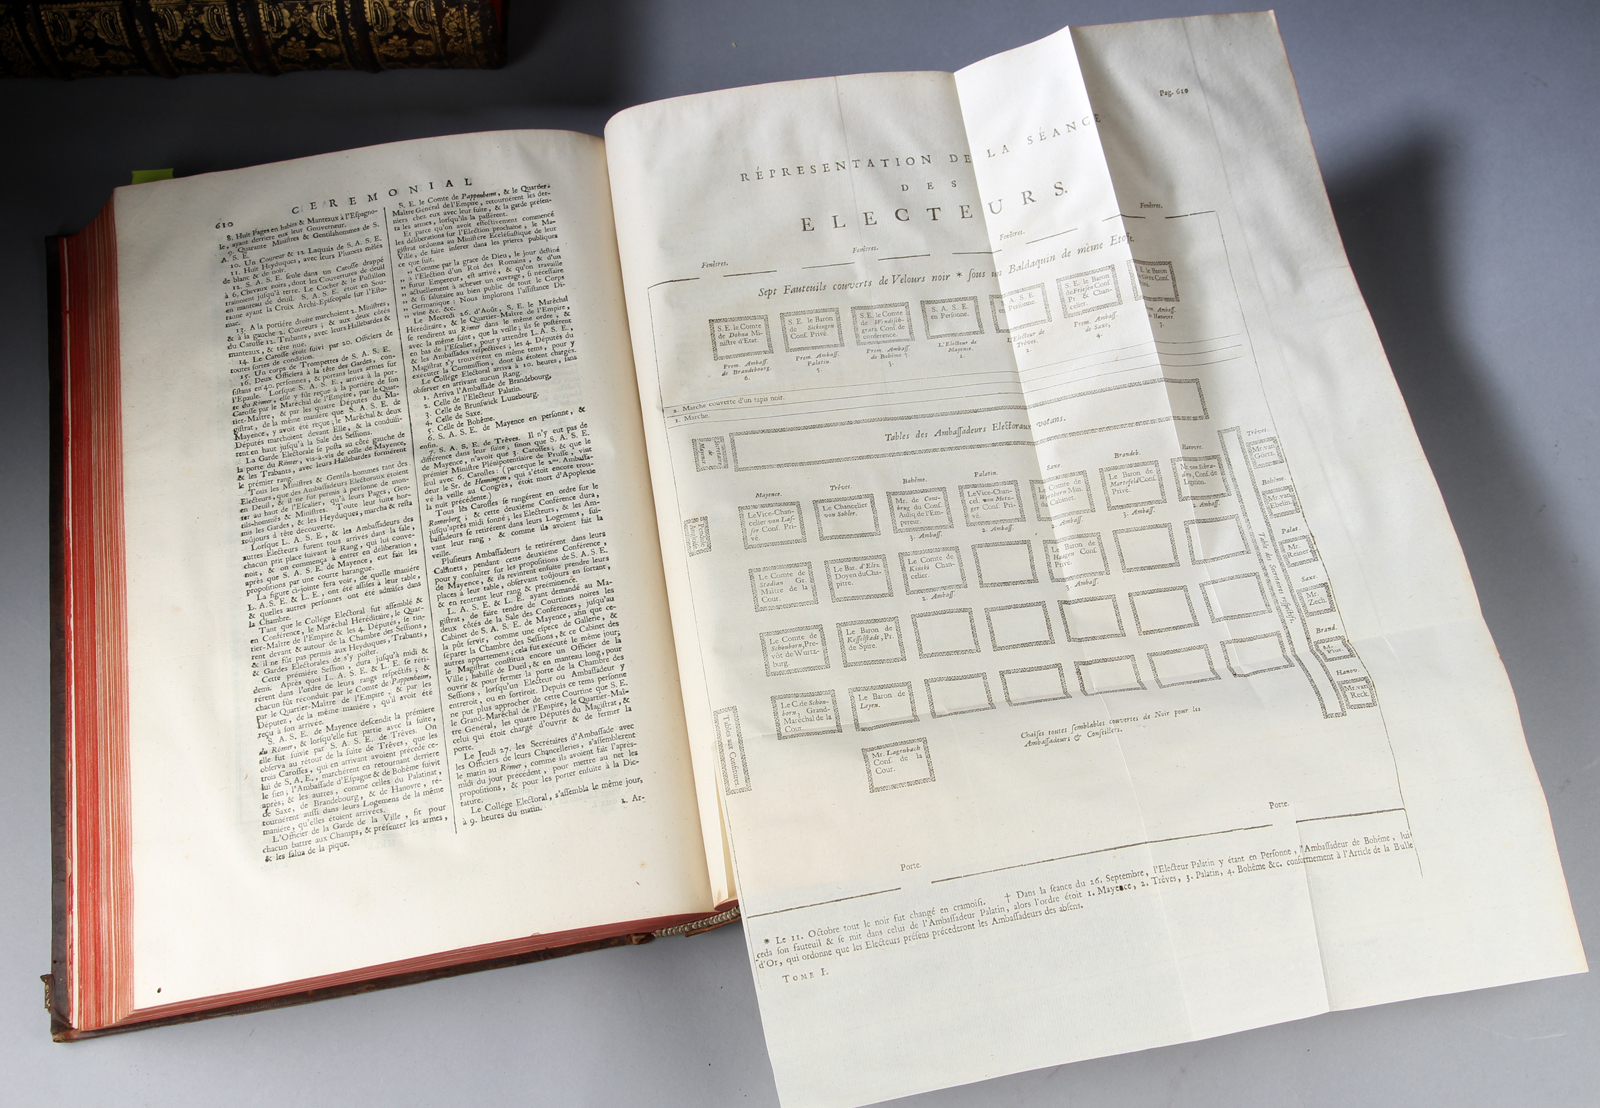 610
CEREMONIAL
8. Huit Pages en habits & Manteaux à l'Espagno-
le, ayant derriere eux leur Gouverneur.
9. Quarante Ministres & Gentilshommes de S.
A. S. E.
10. Un Coureur & 12 Laquais de S. A. S. E.
11. Huit Heyduques, avec leurs Plumets mêlés
de blanc & de noir.
12. S. A. S. E. seule dans un Carosse drappé
à 6. Chevaux noirs, dont les Couvertures de deuil
trainoient jusqu'à terre. Le Cocher & le Postillon
en manteau de deuil. S. A. S. E. étoit en Sou-
tane ayant la Croix Archi-Episcopale sur l'Esto-
mac.
13. A la portière droite marchoient 2. Ministres,
& à la gauche 2. Coureurs; & aux deux côtés
du Carosse 12. Trabants, avec leurs Hallebardes &
manteaux, & tête nue.
14. Le Carosse étoit suivi par 20. Officiers de
toutes sortes de condition.
15. Un corps de Trompettes de S. A. S. E.
16. Deux Officiers à la tête des Gardes, con-
sistans en 40. personnes, & portans leurs armes sur
l'Epaule. Lorsque S. A. S. E. arriva à la por-
te du Rômer, elle y fût reçue à la portière de son
Carosse par le Maréchal de l'Empire, par le Quar-
tier-Maître, & par les quatre Députés du Ma-
gistrat, de la même manière que S. A. S. E. de
Mayence, y avoit été reçue; le Maréchal & deux
Députés marchoient devant Elle, & la conduisi-
rent en haut jusqu'à la Sale des Sessions.
La Garde Electorale se posta au côté gauche de
la porte du Rômer, vis-à-vis de celle de Mayence,
& les Trabants, avec leurs Hallebardes formèrent
le premier rang.
Tous les Ministres & Gentils-hommes tant des
Electeurs, que des Ambassadeurs Electoraux étoient
en Deuil, & il ne fut permis à personne de mon-
ter au haut de l'Escalier, qu'à leurs Pages, Gen-
tils-hommes & Ministres. Toute leur suite hor-
mis les Gardes, & les Heyduques, marcha & resta
toujours à tête découverte.
Lorsque L. A. S. E., & les Ambassades des
autres Electeurs furent tous arrivés dans la sale,
chacun prit place suivant le Rang, qui lui conve-
noit, & on commença à entrer en déliberation,
après que S. A. S. E. de Mayence, eut fait les
propositions par une courte harangue.
La figure ci-jointe fera voir, de quelle manière
L. A. S. E. & L. E., ont été assises à leur table,
& quelles autres personnes ont été admises dans
la Chambre.
Tant que le Collège Electoral fut assemblé &
en Conférence, le Maréchal Héréditaire, le Quar-
tier-Maître de l'Empire & les 4. Députés, se tin-
rent devant & autour de la Chambre des Sessions,
& il ne fût pas permis aux Heyduques, Trabants,
Gardes Electorales de s'y poster.
Cette première Session, dura jusqu'à midi &
demi. Après quoi L. A. S. E. & L. E. se reti-
rérent dans l'ordre de leurs rangs respectifs, &
chacun fut réconduit par le Comte de Pappenheim,
par le Quartier-Maître de l'Empire, & par les
Députés, de la même manière, qu'il avoit été
reçu à son arrivée.
S. A. S. E. de Mayence descendit la première
du Rômer, & lorsqu'elle fut partie avec sa suite,
elle fut suivie par S. A. S. E. de Trèves. On
observa au retour de la suite de Trèves, que les
trois Carosses, qui en arrivant avoient précédé ce-
lui de S. A. E., marchèrent en retournant derriere
le sien; l'Ambassade d'Espagne & de Bohême suivit
après; & les autres, comme celles du Palatinat,
de Saxe, de Brandebourg, & de Hanovre, ré-
tournérent aussi dans leurs Logemens de la même
manière, qu'elles étoient arrivées.
L'Officier de la Garde de la Ville, fit pour
chacun battre aux Champs, & présenter les armes,
& les salua de la pique.
S. E. le Comte de Pappenheim, & le Quartier-
Maître Général de l'Empire, retournérent les der-
niers chez eux avec leur suite, & la garde présen-
ta les armes, lorsqu'ils la passérent.
Et parce qu'on avoit effectivement commencé
les déliberations sur l'Election prochaine, le Ma-
gistrat ordonna au Ministère Ecclésiastique de leur
Ville, de faire insérer dans les prieres publiques
ce que suit.
„ Comme par la grace de Dieu, le jour destiné
„ à l'Election d'un Roi des Romains, & d'un
„ futur Empereur, est arrivé, & qu'on travaille
„ actuellement à achever un ouvrage, si nécessaire
„ & si salutaire au bien public de tout le Corps
„ Germanique: Nous implorons l'assistance Di-
„ vine &c. &c.
Le Mecredi 26. d'Août, S. E. le Maréchal
Héréditaire, & le Quartier-Maître de l'Empire,
se rendirent au Rômer dans le même ordre, &
avec la même suite, que la veille; ils se postérent
en bas de l'Escalier, pour y attendre L. A. S. E.,
& les Ambassades respectives, les 4. Députés du
Magistrat s'y trouvérent en même tems, pour y
exécuter la Commission, dont ils étoient chargés.
Le Collège Electoral arriva à 10. heures, sans
observer en arrivant aucun Rang.
1. Arriva l'Ambassade de Brandebourg,
2. Celle de l'Electeur Palatin.
3. Celle de Brunswick Lunebourg.
4. Celle de Saxe.
5. Celle de Bohême.
6. S. A. S. E. de Mayence en personne, &
enfin.
7. S. A. S. E. de Trèves. Il n'y eut pas de
différence dans leur suite, sinon que S. A. S. E.
de Mayence, n'avoit que 3. Carosses, & que le
premier Ministre Plénipotentiaire de Prusse, vint
seul avec 6. Carosses: (parceque le 2me. Ambassa-
deur le Sr. de Henningen, qui s'étoit encore trou-
vé la veille au Congrès, étoit mort d'Apoplexie
la nuit précédente.)
Tous les Carosses se rangérent en ordre sur le
Romerberg; & cette deuxième Conférence dura,
jusqu'après midi sonné; les Electeurs, & les Am-
bassadeurs se retirérent dans leurs Logemens, sui-
vant leur rang, & comme ils avoient fait la
veille.
Plusieurs Ambassadeurs se retirérent dans leurs
Cabinets, pendant cette deuxième Conférence,
pour y consulter sur les propositions de S. A. S. E.
de Mayence, & ils revinrent ensuite prendre leurs
places à leur table, observant toûjours en sortant,
& en rentrant leur rang & prééminence.
L. A. S. E. & L. E. ayant demandé au Ma-
gistrat, de faire tendre de Courtines noires les
deux côtés de la Sale des Conférences, jusqu'au
Cabinet de S. A. S. E. de Mayence, afin que ce-
la pût servir, comme une espece de Gallerie, &
séparer la Chambre des Sessions, & ce Cabinet des
autres appartemens; cela fut exécuté le même jour;
le Magistrat constitua encore un Officier de la
Ville; habillé de Dueil, & en manteau long, pour
ouvrir & pour fermer la porte de la Chambre des
Sessions, lorsqu'un Electeur ou Ambassadeur y
entreroit, ou en sortiroit. Depuis ce tems personne
ne put plus approcher de cette Courtine que S. E.
le Grand-Maréchal de l'Empire, le Quartier-Maî-
tre Général, les quatre Députés du Magistrat, &
celui qui étoit chargé d'ouvrir & de fermer la
porte.
Le Jeudi 27. les Secrétaires d'Ambassade avec
les Officiers de leurs Chancelleries, s'assemblérent
le matin au Rômer, comme ils avoient fait l'après-
midi du jour précédent, pour mettre au net les
propositions, & pour les porter ensuite à la Dic-
tature.
Le Collège Electoral, s'assembla le même jour,
à 9. heures du matin.
1. Ar-
Pag. 610
RÉPRESENTATION DE LA SÉANCE
DES
ELECTEURS.
Fenêtres. Fenêtres. Fenêtres. Fenêtres.
Sept Fauteuils couverts de Velours noir * sous un Baldaquin de même Etofe.
S. E. le Comte de Dohna Ministre d'Etat.
Prem. Ambass. de Brandebourg. 6.
S. E. le Baron de Sickingen Conf. Privé.
Prem. Ambass. Palatin 5.
S. E. le Comte de Windischgratz Conf. de conference.
Prem. Ambass. de Bohême †. 3.
S. A. S. E. en Personne.
L'Electeur de Mayence. 1.
S. A. S. E. en Personne.
L'Electeur de Trèves. 2.
S. E. le Baron de Friesen Conf. Pr. & Chancelier.
Prem. Ambass. de Saxe, 4.
2. Marche couverte d'un tapis noir.
1. Marche.
Tables des Ambassadeurs Electoraux votans.
Mayence. Trèves. Bohême. Palatin. Saxe. Brandeb. Hanovre.
Le Vice-Chancelier von Lasser Conf. Privé.
Le Chancelier von Sohler.
Le Comte de Stadian Gr. Maître de la Cour.
Le Bar. d'Eltz Doyen du Chapitre.
Le Comte de Kinski Chancelier.
2. Ambass.
Le Comte de Schonborn, Prevôt de Wurtzburg.
Le Baron de Kesselstadt, Pr. de Spire.
Le C. de Schonborn, Grand-Maréchal de la Cour.
Le Baron de Leyen.
Mr. Lagenbach Conf. de la Cour.
Chaises toutes semblables couvertes de Noir pour les
Ambassadeurs & Conseillers.
Trèves.
Bohême.
Palat.
Mr. Reiner
Saxe.
Mr. Zech.
Brand.
Hanov.
Mr. von Reck.
Porte. Porte.
* Le 11. Octobre tout le noir fut changé en cramoisi. † Dans la séance du 26. Septembre, l'Electeur Palatin y étant en Personne, l'Ambassadeur de Bohême, lui
ceda son fauteuil & se mit dans celui de l'Ambassadeur Palatin, alors l'ordre étoit 1. Mayence, 2. Trèves, 3. Palatin, 4. Bohême &c. conformement à l'Article de la Bulle
d'Or, qui ordonne que les Electeurs présens précederont les Ambassadeurs des absens.
TOME I.